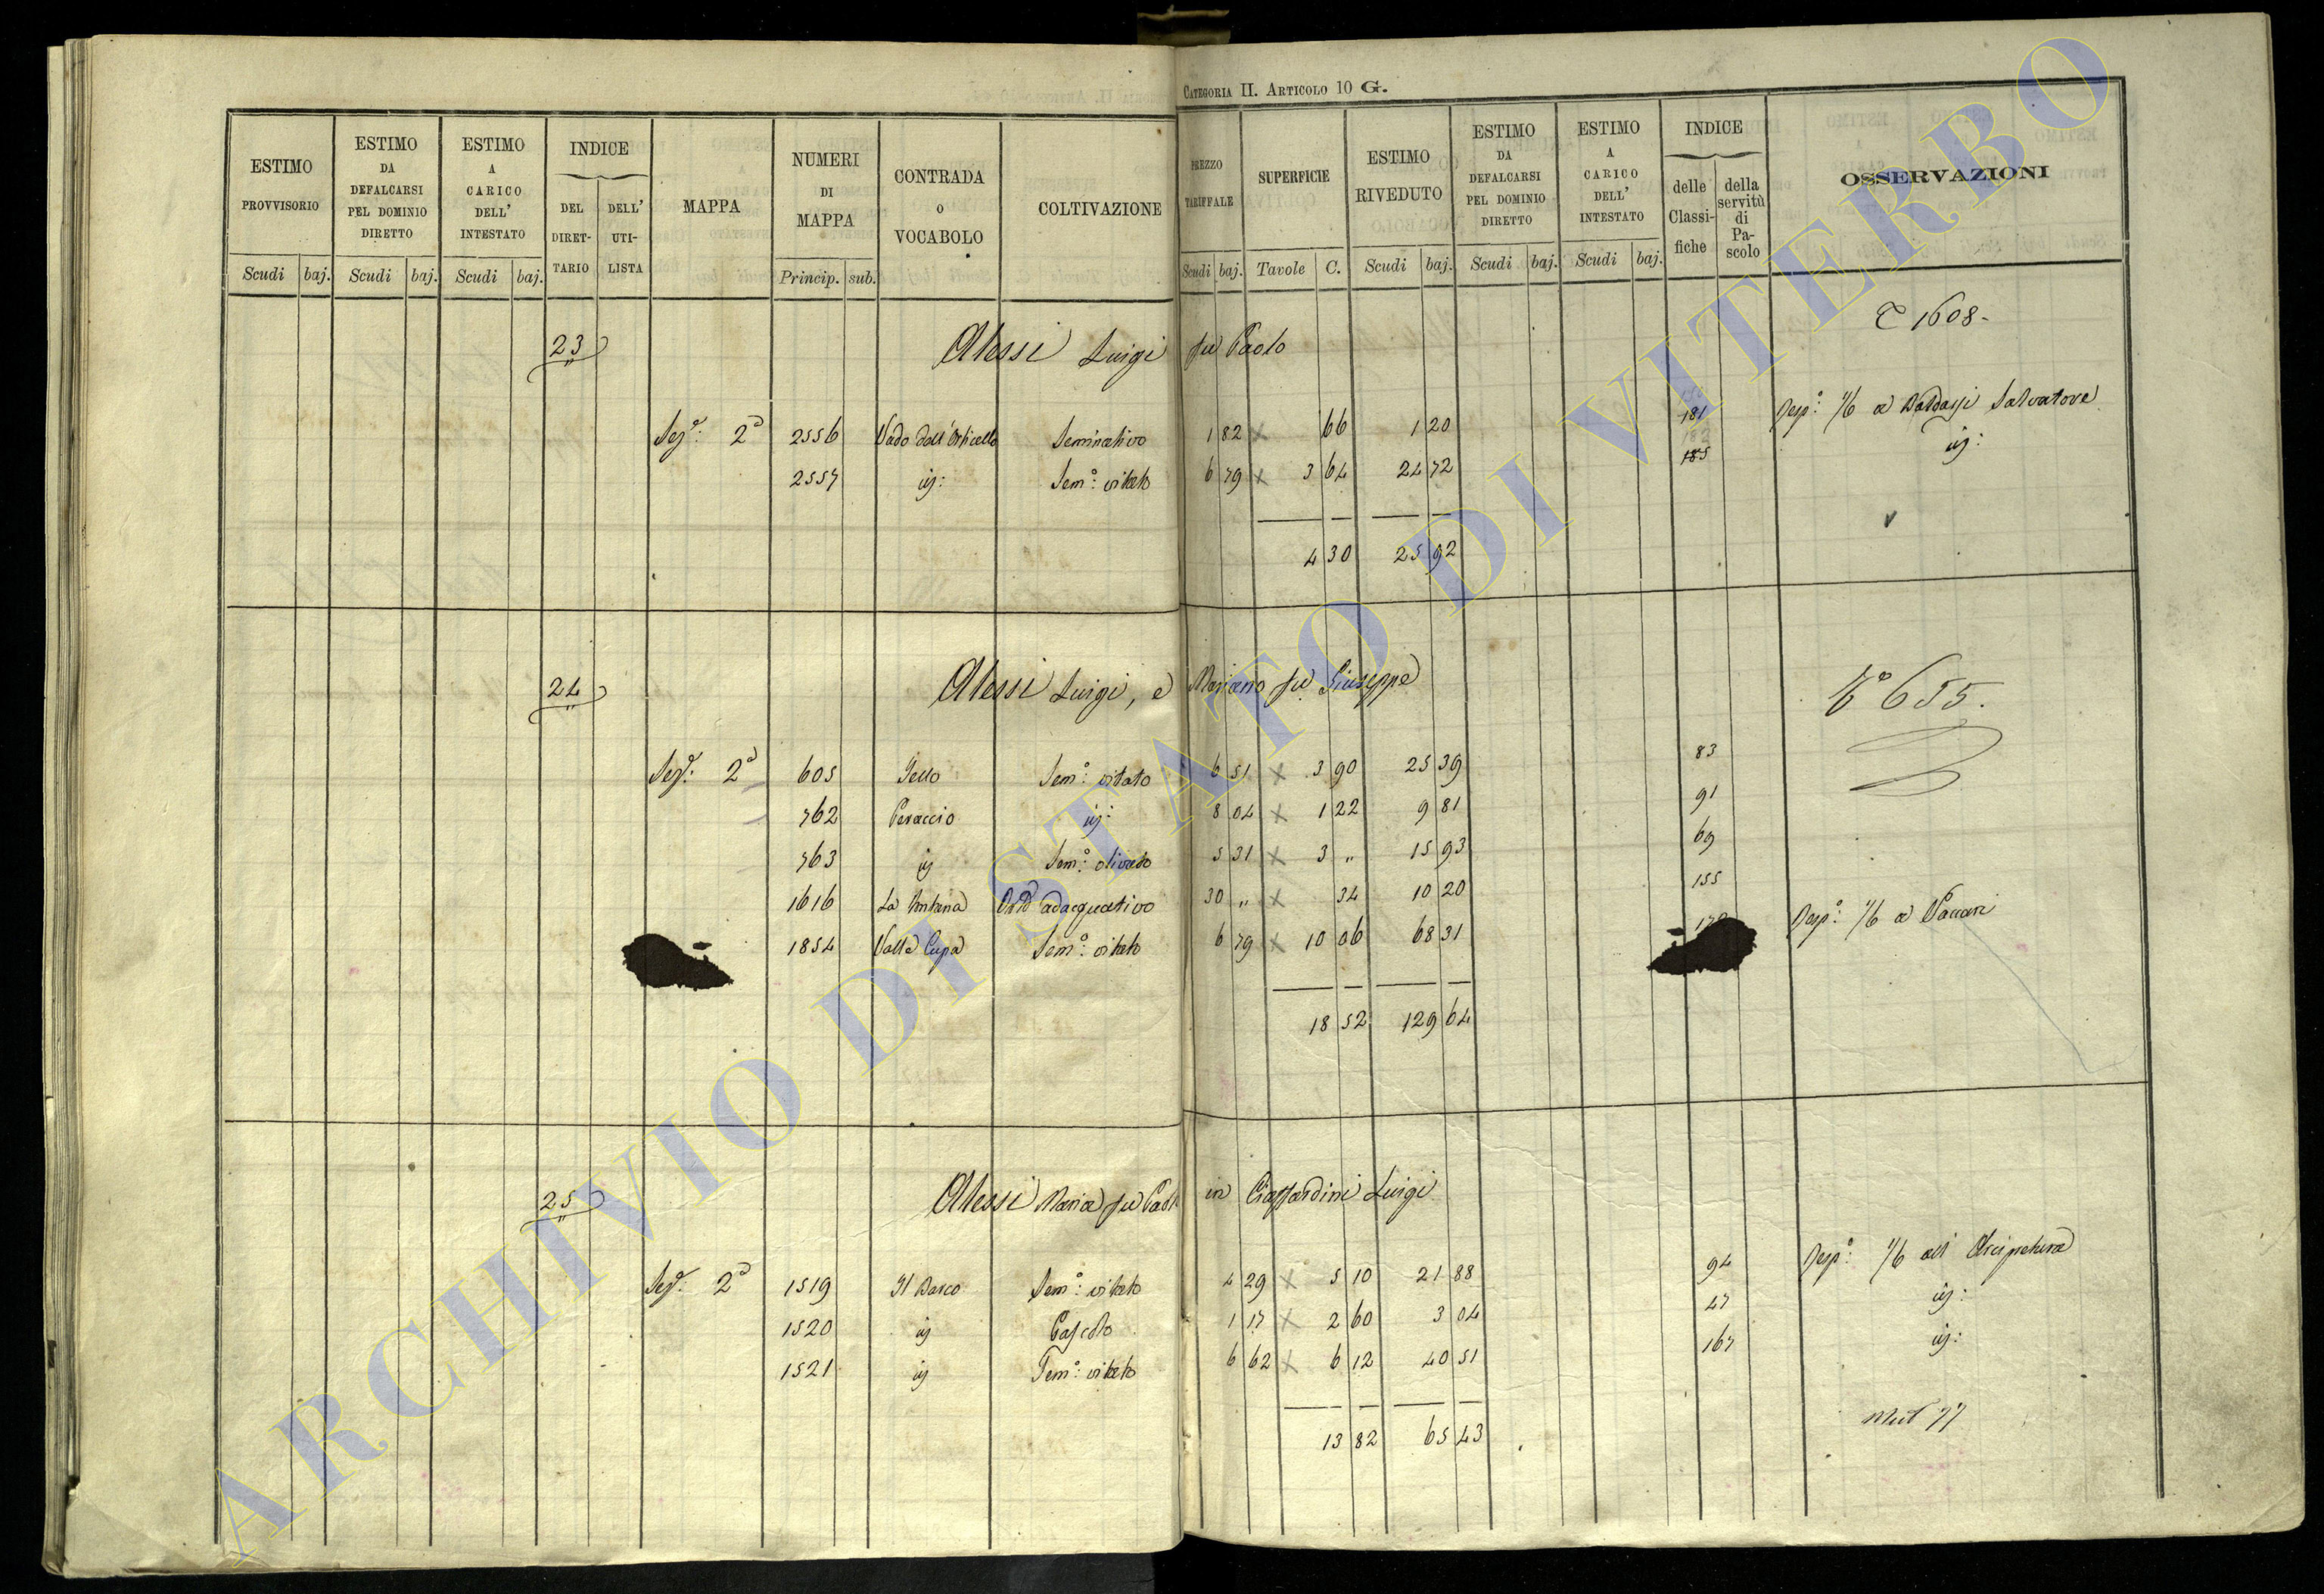 CATEGORIA II. ARTICOLO 10 G.
ESTIMO PROVVISORIO
ESTIMO DA DEFALCARSI PEL DOMINIO DIRETTO
ESTIMO A CARICO DELL' INTESTATO
INDICE
DEL DIRET-TARIO
DELL' UTI-LISTA
MAPPA
NUMERI DI MAPPA
CONTRADA O VOCABOLO
COLTIVAZIONE
PREZZO TARIFFALE
SUPERFICIE
ESTIMO RIVEDUTO
ESTIMO DA DEFALCARSI PEL DOMINIO DIRETTO
ESTIMO A CARICO DELL' INTESTATO
INDICE
delle Classi-fiche
della servitù di Pa-scolo
OSSERVAZIONI
Scudi baj. Scudi baj. Scudi baj. Princip. sub. Scudi baj. Tavole C. Scudi baj. Scudi baj. Scudi baj.
23 Alessi Luigi fu Paolo 1608-
Sez.e 2a 2556 Vado dell'Orticello Seminativo 1 82 66 1 20 181 Resp.o 1/6 a Baldassi Salvatore
2557 id: Sem.o vitato 6 79 3 64 24 72 185 id:
4 30 25 92
24 Alessi Luigi, e Mariano fu Giuseppe 655.
Sez.e 2a 605 Sem.o vitato 6 51 3 90 25 39 83
762 Peraccio id: 8 04 1 22 9 81 91
763 id Sem.o olivato 5 31 3 " 15 93 69
1616 La Fontana Ort.o adacquativo 30 " 34 10 20 155
1854 Valle Cupa Sem.o vitato 6 79 10 06 68 31 Resp.o 1/6 a Vaccari
18 52 129 64
25 Alessi Maria fu Paolo in Ciaffardini Luigi
Sez.e 2a 1519 Il Barco Sem.o vitato 4 29 5 10 21 88 94 Resp.o 1/6 all' Arcipretura
1520 id Pascolo 1 17 2 60 3 04 47 id:
1521 id Sem.o vitato 6 62 6 12 40 51 167 id:
Mut 77
13 82 65 43
ARCHIVIO DI STATO DI VITERBO